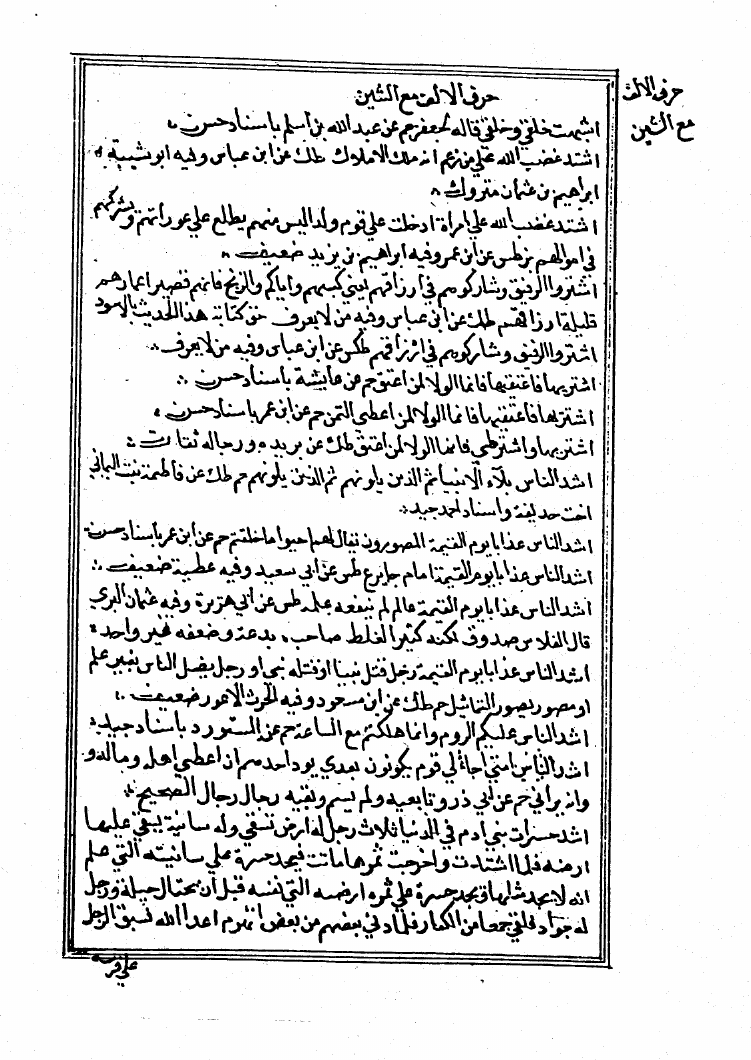 حرف الالف
مع الشين
حرف الالف مع الشين
اشبهت خلقي وخلقي قاله لجعفر حم عن عبد الله بن اسلم باسناد حسن
اشتد غضب الله علي من زعم انه ملك الاملاك طك عن ابن عباس وفيه ابو شيبة
ابراهيم بن عثمان متروك
اشتد غضب الله علي امراة ادخلت علي قوم ولدا ليس منهم يطلع علي عوراتهم ويشركهم
في اموالهم بز طس عن ابن عمر وفيه ابراهيم بن يزيد ضعيف
اشتروا الرقيق وشاركوهم في ارزاقهم يعني كسبهم واياكم والزنج فانهم قصيرة اعمارهم
قليلة ارزاقهم طك عن ابن عباس وفيه من لا يعرف حق كتابة هذا الحديث بالاسود
اشتروا الرقيق وشاركوهم في ارزاقهم طكس عن ابن عباس وفيه من لا يعرف
اشتريها فاعتقيها فانما الولا لمن اعتق حم عن عايشة باسناد حسن
اشترها فاعتقيها فانما الولا لمن اعطي الثمن حم عن ابن عمر باسناد حسن
اشتريها واشترطي فانما الولا لمن اعتق طك عن بريده ورجاله ثقات
اشد الناس بلآء الانبيا ثم الذين يلونهم ثم الذين يلونهم حم طك عن فاطمة بنت اليماني
اخت حذيفة واسناد احمد جيد
اشد الناس عذابا يوم القيمة المصورون يقال لهم احيوا ما خلقتم حم عن ابن عمر باسناد حسن
اشد الناس عذابا يوم القيمة امام جاير ع طس عن ابي سعيد وفيه عطية ضعيف
اشد الناس عذابا يوم القيمة عالم لم ينفعه علمه طس عن ابي هريرة وفيه عثمان البري
قال الفلاس صدوق لكنه كثير الغلط صاحب بدعة وضعفه غير واحد
اشد الناس عذابا يوم القيمة رجل قتل نبيا او قتله نبي او رجل يضل الناس بغير علم
او مصور يصور التماثيل حم طك عن ابن مسعود وفيه الحرث الاعور ضعيف
اشد الناس عليكم الروم وانما هلكتم مع الساعة حم عن المستورد باسناد جيد
اشد الناس امتي حبا لي قوم يكونون بعدي يود احدهم ان اعطي اهله وماله و
وانه يراني حم عن ابي ذر وتابعيه ولم يسم وبقيه رجال رجال الصحيح
اشد حسرات بني ادم في الدنيا ثلاث رجل له ارض تسقي وله سانية يسقي عليها
ارضه فلما اشتدت واخرجت ثمرها ماتت فيجد حسرة علي سانيته التي علم
انه لا يجد مثلها ويجد حسرة علي ثمره ارضه التي تفسد قبل ان يحتال حيلة ورجل
له جواد فلقي جمعا من الكفار فلما دني بعضهم من بعض انهزم اعدا الله فسبق الرجل
علي فرسه